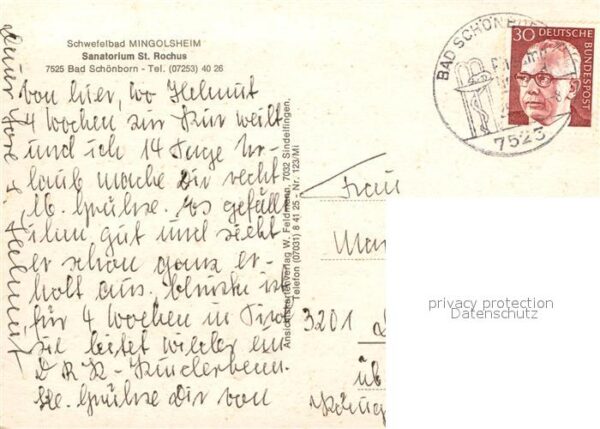 Schwefelbad MINGOLSHEIM
Sanatorium St. Rochus
7525 Bad Schönborn - Tel. (07253) 40 26
Von hier, wo Helmut
4 Wochen zur Kur weilt
und ich 14 Tage Ur-
laub mache Dir recht
lb. Grüße. Es gefällt
ihm gut und sieht
er schon ganz er-
holt aus. ist
für 4 Wochen in Tirol
sie leitet wieder ein
D R K - Kinder
Grüße Dir von
Deine u. Helmut
Ansichtskartenverlag W. Feldmann, 7032 Sindelfingen,
Telefon (07031) 8 41 25 - Nr. 123/Mi
BAD SCHÖNBORN
7525
30 DEUTSCHE
BUNDESPOST
Frau
Mar
3201
üb
König
privacy protection
Datenschutz